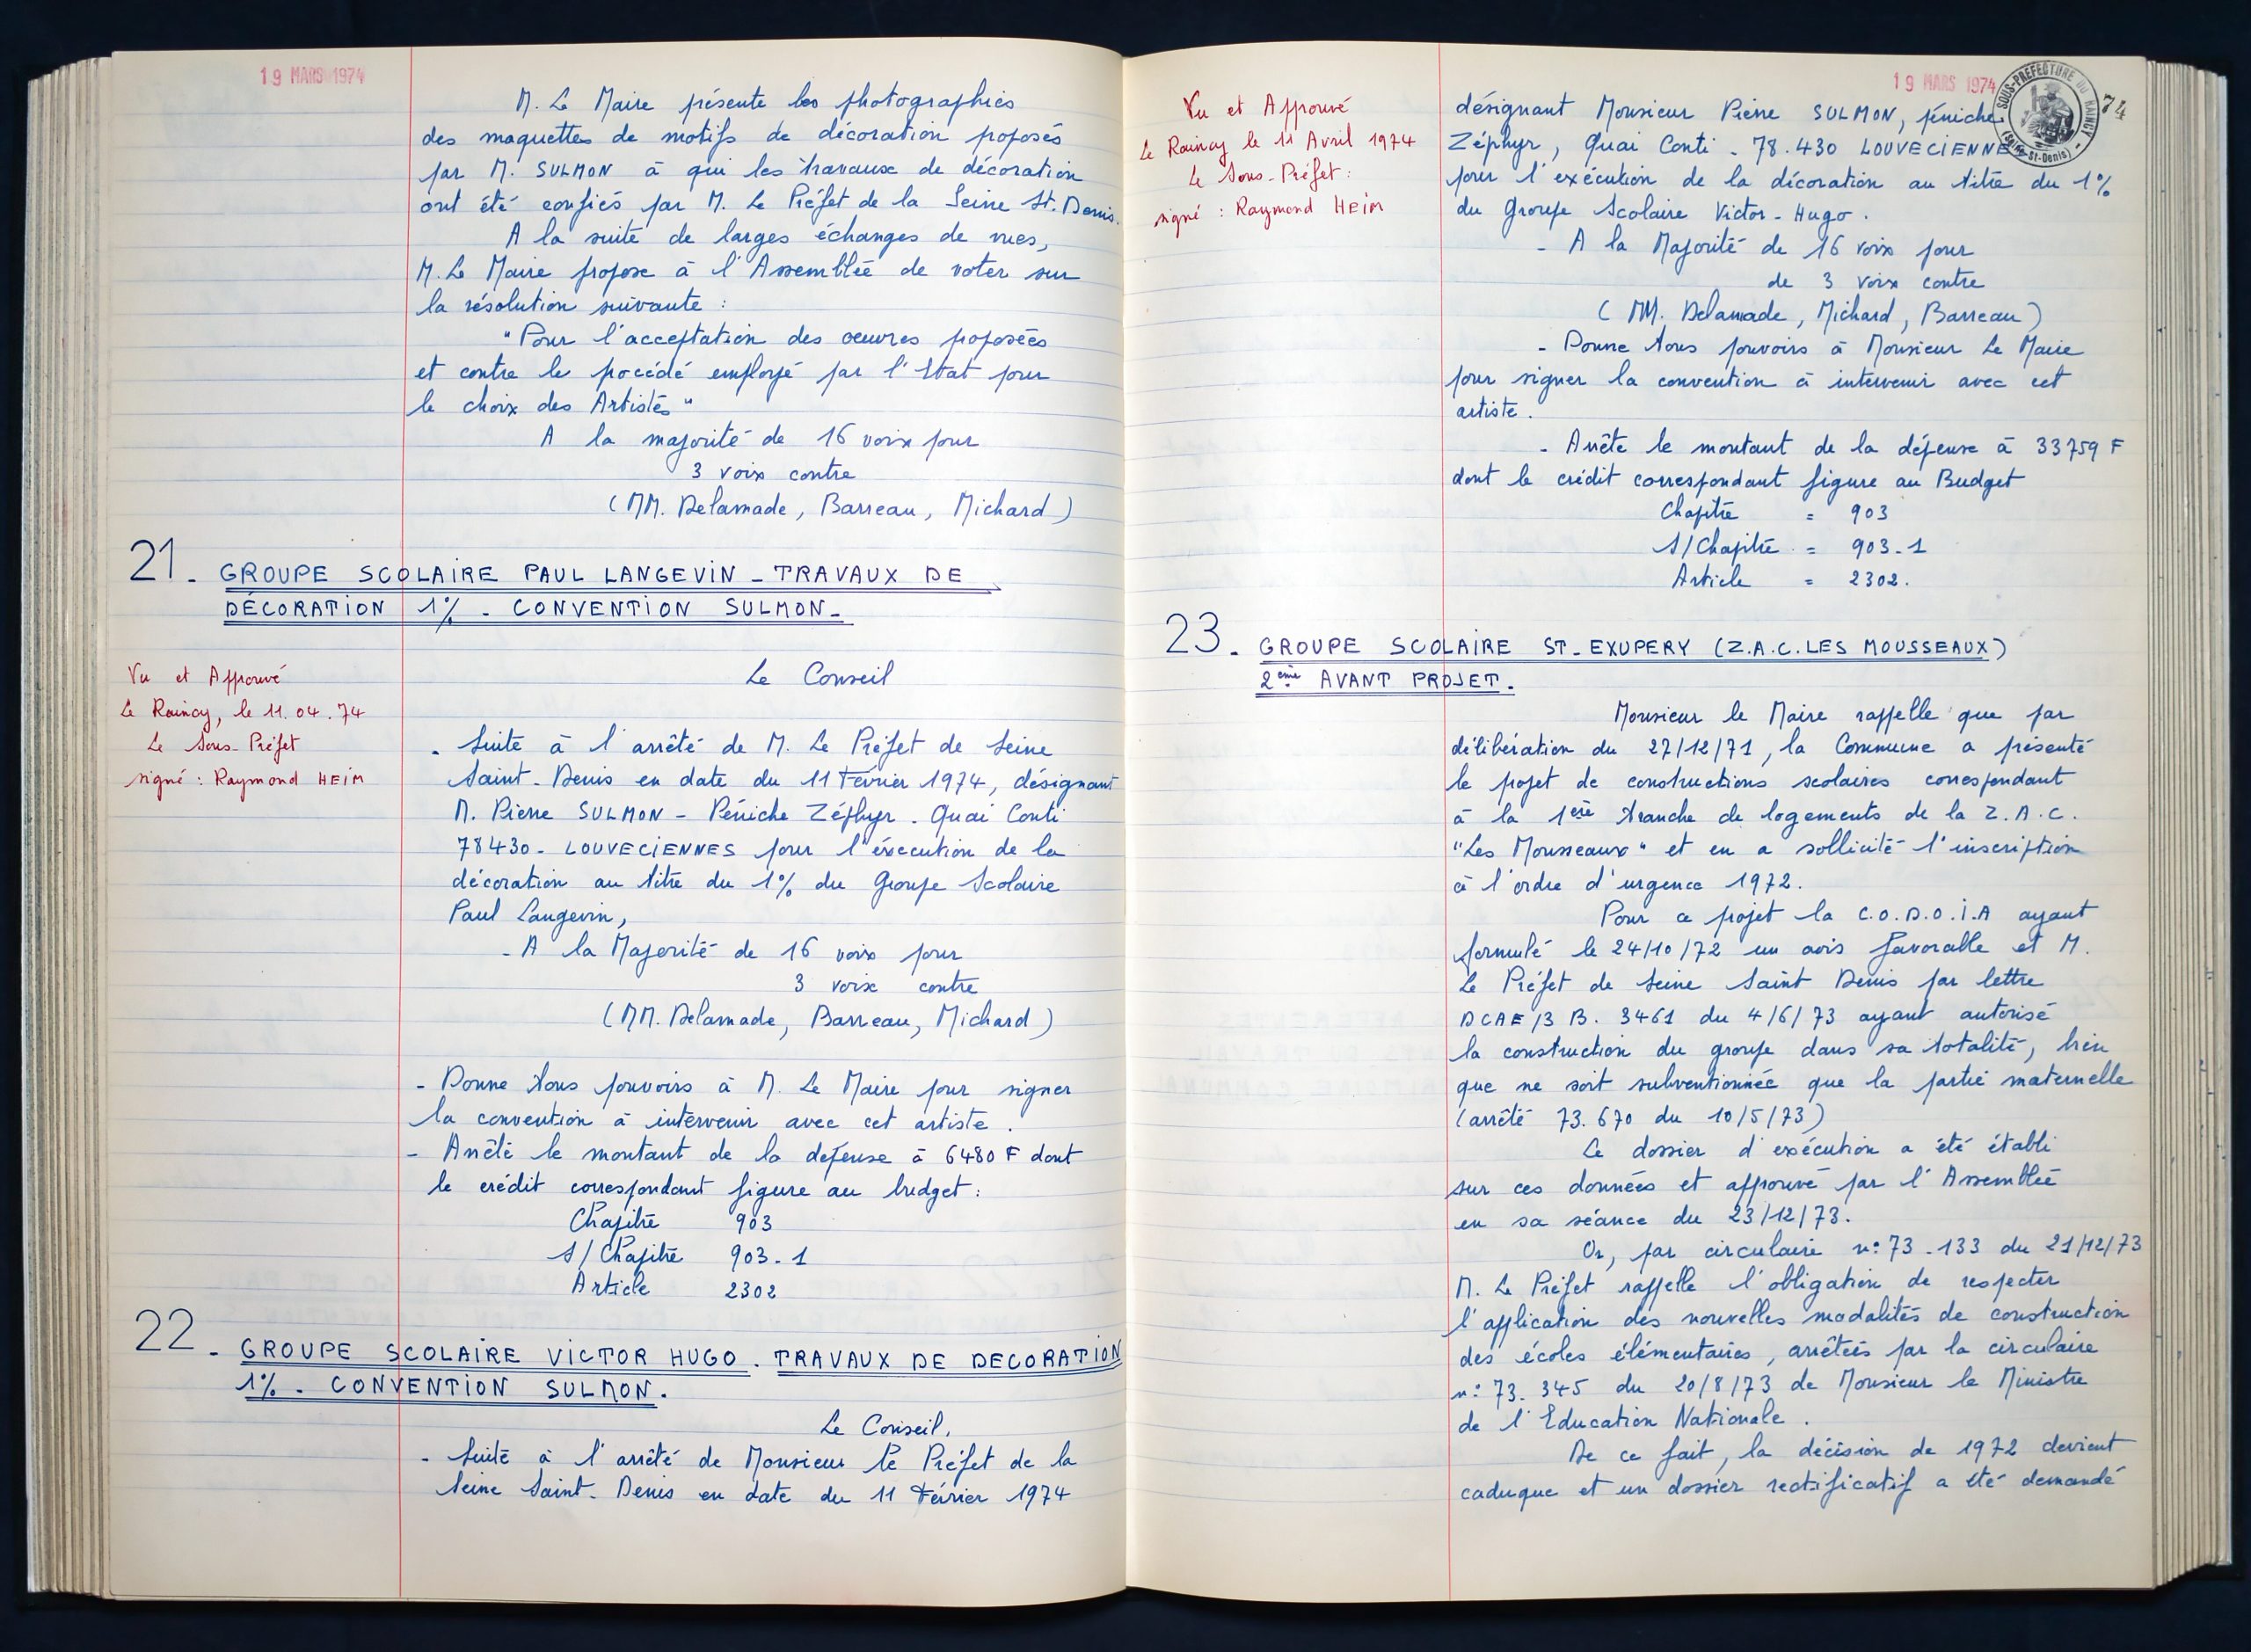 19 MARS 1974
M. Le Maire présente les photographies
des maquettes de motifs de décoration proposés
par M. SULMON à qui les travaux de décoration
ont été confiés par M. Le Préfet de la Seine St. Denis.
A la suite de larges échanges de vues,
M. Le Maire propose à l'Assemblée de voter sur
la résolution suivante :
"Pour l'acceptation des oeuvres proposées
et contre le procédé employé par l'Etat pour
le choix des Artistes"
A la majorité de 16 voix pour
3 voix contre
(MM. Delamade, Barreau, Michard)
21. GROUPE SCOLAIRE PAUL LANGEVIN - TRAVAUX DE
DÉCORATION 1% - CONVENTION SULMON -
Vu et Approuvé
Le Raincy, le 11.04.74
Le Sous-Préfet
signé : Raymond HEIM
Le Conseil
- Suite à l'arrêté de M. Le Préfet de Seine
Saint-Denis en date du 11 Février 1974, désignant
M. Pierre SULMON - Péniche Zéphyr - Quai Conti
78430 - LOUVECIENNES pour l'éxecution de la
décoration au titre du 1% du Groupe Scolaire
Paul Langevin,
- A la Majorité de 16 voix pour
3 voix contre
(MM. Delamade, Barreau, Michard)
- Donne tous pouvoirs à M. Le Maire pour signer
la convention à intervenir avec cet artiste.
- Arrête le montant de la dépense à 6480 F dont
le crédit correspondant figure au budget :
Chapitre 903
S/Chapitre 903-1
Article 2302
22. GROUPE SCOLAIRE VICTOR HUGO. TRAVAUX DE DECORATION
1%. CONVENTION SULMON.
Le Conseil,
- Suite à l'arrêté de Monsieur le Préfet de la
Seine Saint-Denis en date du 11 Février 1974
19 MARS 1974
SOUS-PREFECTURE DU RAINCY
(Seine-St-Denis)
74
Vu et Approuvé
Le Raincy le 11 Avril 1974
Le Sous-Préfet :
signé : Raymond HEIM
désignant Monsieur Pierre SULMON, péniche
Zéphyr, Quai Conti - 78.430 LOUVECIENNE
pour l'exécution de la décoration au titre du 1%
du Groupe Scolaire Victor-Hugo.
- A la Majorité de 16 voix pour
de 3 voix contre
(MM. Delamade, Michard, Barreau)
- Donne tous pouvoirs à Monsieur Le Maire
pour signer la convention à intervenir avec cet
artiste.
- Arrête le montant de la dépense à 33759 F
dont le crédit correspondant figure au Budget
Chapitre = 903
S/Chapitre = 903-1
Article = 2302.
23. GROUPE SCOLAIRE ST-EXUPERY (Z.A.C. LES MOUSSEAUX)
2ème AVANT PROJET.
Monsieur le Maire rappelle que par
délibération du 27/12/71, la Commune a présenté
le projet de constructions scolaires correspondant
à la 1ère tranche de logements de la Z.A.C.
"Les Mousseaux" et en a sollicité l'inscription
à l'ordre d'urgence 1972.
Pour ce projet la C.O.D.O.I.A ayant
formulé le 24/10/72 un avis favorable et M.
Le Préfet de Seine Saint Denis par lettre
DCAE/3 B. 3461 du 4/6/73 ayant autorisé
la construction du groupe dans sa totalité, bien
que ne soit subventionnée que la partie maternelle
(arrêté 73.670 du 10/5/73)
Le dossier d'exécution a été établi
sur ces données et approuvé par l'Assemblée
en sa séance du 23/12/73.
Or, par circulaire n° 73-133 du 21/12/73
M. Le Préfet rappelle l'obligation de respecter
l'application des nouvelles modalités de construction
des écoles élémentaires, arrêtées par la circulaire
n° 73.345 du 20/8/73 de Monsieur le Ministre
de l'Education Nationale.
De ce fait, la décision de 1972 devient
caduque et un dossier rectificatif a été demandé